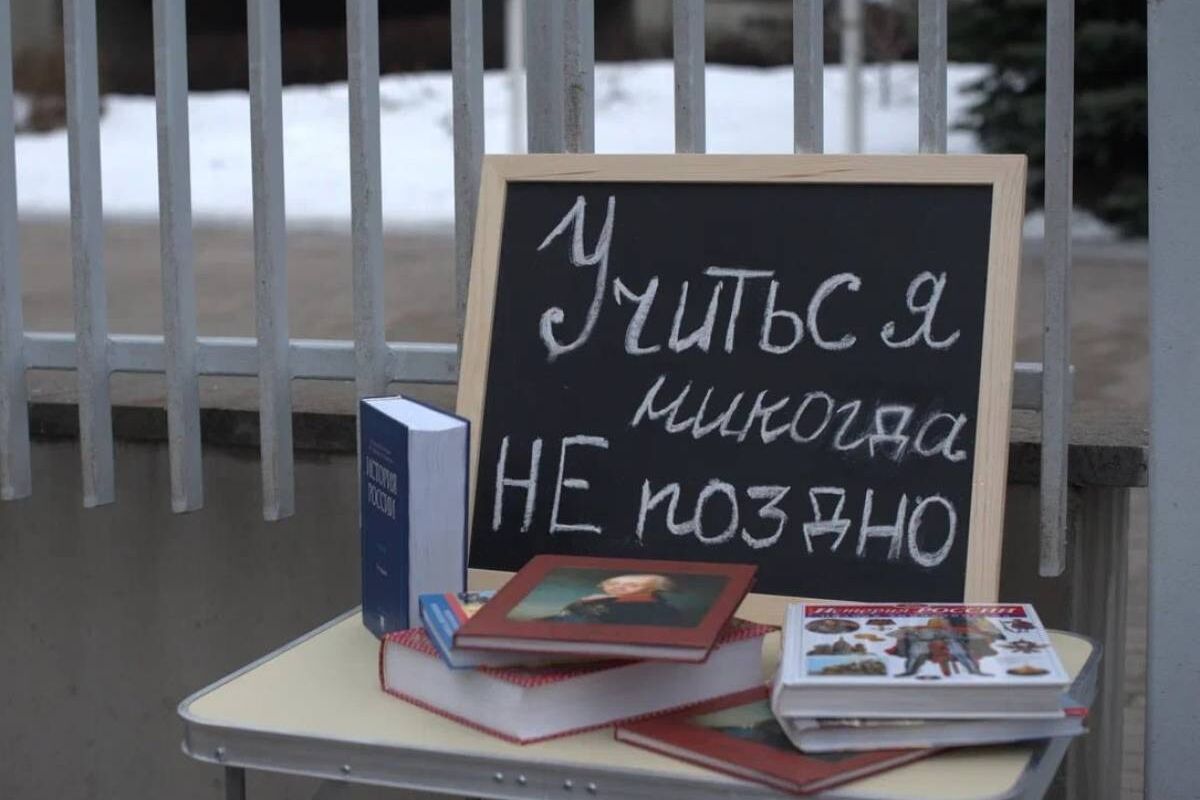 Учиться
никогда
НЕ поздно
ИСТОРИЯ
РОССИИ
История РОССИИ